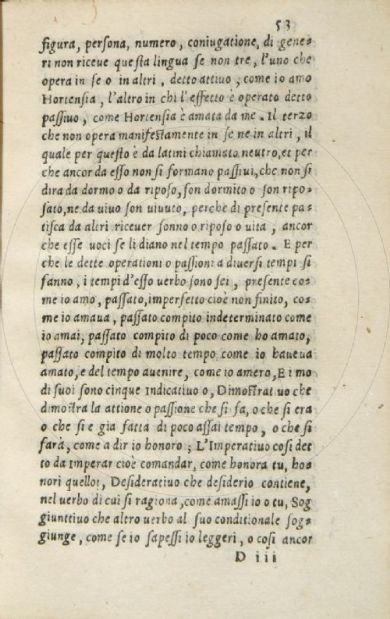 53
figura, persona, numero, coniugatione, di gene=
ri non riceue queſta lingua ſe non tre, l'uno che
opera in ſe o in altri, detto attiuo, come io amo
Hortenſia, l'altro in chi l'effetto è operato detto
paſſiuo, come Hortenſia è amata da me. Il terzo
che non opera manifeſtamente in ſe ne in altri, il
quale per queſto è da latini chiamato neutro, et per
che ancor da eſſo non ſi formano paſſiui, che non ſi
dira da dormo o da ripoſo, ſon dormito o ſon ripo=
ſato, ne da uiuo ſon uiuuto, perche di preſente pa=
tiſca da altri riceuer ſonno o ripoſo o uita, ancor
che eſſe uoci ſe li diano nel tempo paſſato. E per
che le dette operationi o paſſioni a diuerſi tempi ſi
fanno, i tempi d'eſſo uerbo ſono ſei, preſente co=
me io amo, paſſato, imperfetto cioè non finito, co=
me io amaua, paſſato compito indeterminato come
io amai, paſſato compito di poco come ho amato,
paſſato compito di molto tempo come io haueua
amato, e del tempo auenire, come io amero, E i mo
di ſuoi ſono cinque Indicatiuo o, Dimoſtrat uo che
dimoſtra la attione o paſſione che ſi fa, o che ſi era
o che ſi e gia fatta di poco aſſai tempo, o che ſi
farà, come a dir io honoro; L'Imperatiuo coſi det
to da imperar cioè comandar, come honora tu, ho=
nori quello!, Deſideratiuo che deſiderio contiene,
nel uerbo di cui ſi ragiona, come amaſſi io o tu, Sog
giunttiuo che altro uerbo al ſuo conditionale ſog=
giunge, come ſe io ſapeſſi io leggeri, o coſi ancor
D iii